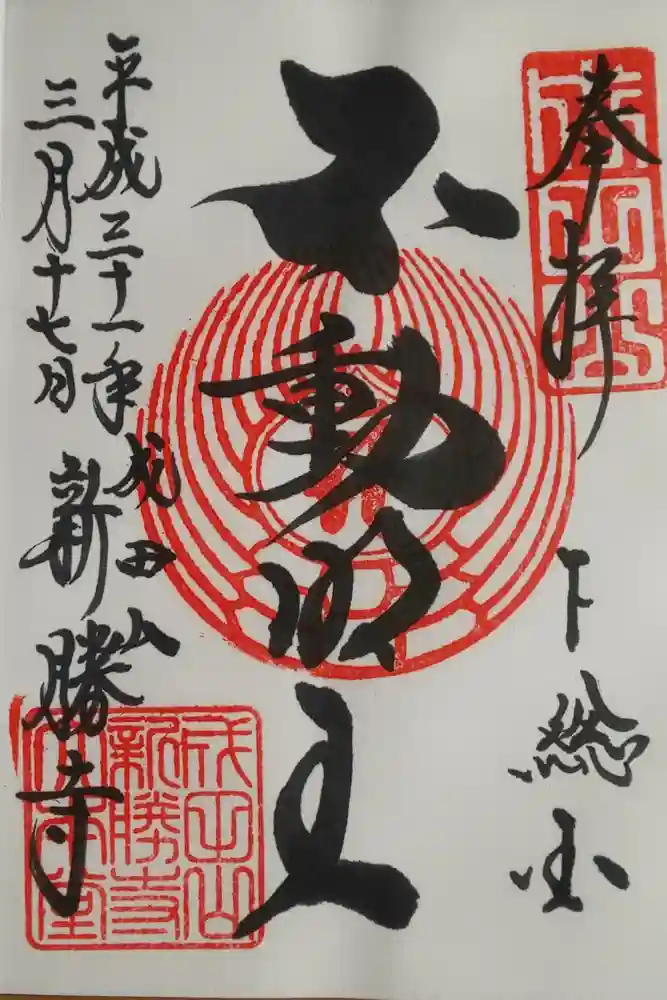 奉拝
下総国
不動明王
平成三十一年
三月十七日
成田山
新勝寺
成田山
新勝寺